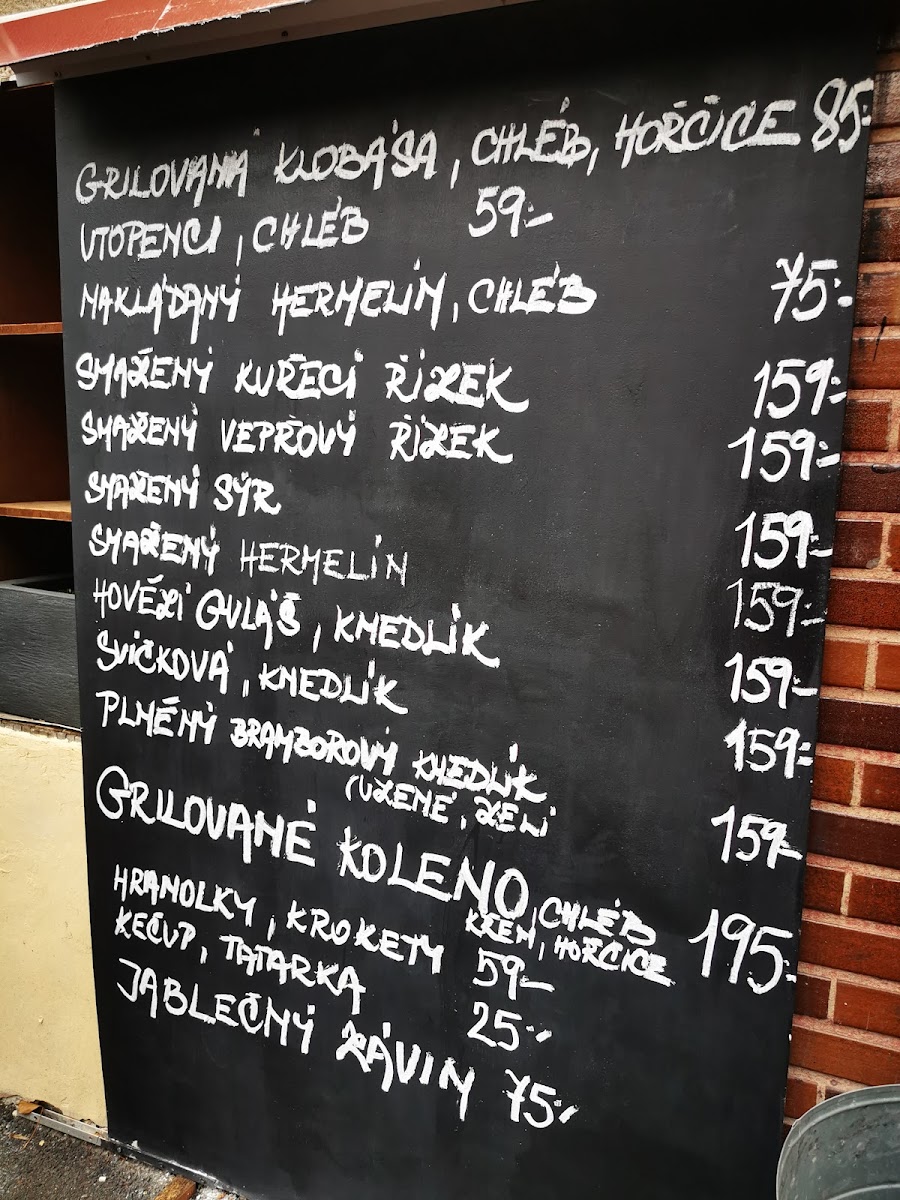 GRILOVANÁ KLOBÁSA, CHLÉB, HOŘČICE 85:-
UTOPENCI, CHLÉB 59:-
NAKLÁDANÝ HERMELÍN, CHLÉB 75:-
SMAŽENÝ KUŘECÍ ŘÍZEK 159:-
SMAŽENÝ VEPŘOVÝ ŘÍZEK 159:-
SMAŽENÝ SÝR 159:-
SMAŽENÝ HERMELÍN 159:-
HOVĚZÍ GULÁŠ, KNEDLÍK 159:-
SVÍČKOVÁ, KNEDLÍK 159:-
PLNĚNÝ BRAMBOROVÝ KNEDLÍK 159:-
(UZENÉ, ZELÍ
GRILOVANÉ KOLENO, CHLÉB 195:-
KŘEN, HOŘČICE
HRANOLKY, KROKETY 59:-
KEČUP, TATARKA 25:-
JABLEČNÝ ZÁVIN 75:-